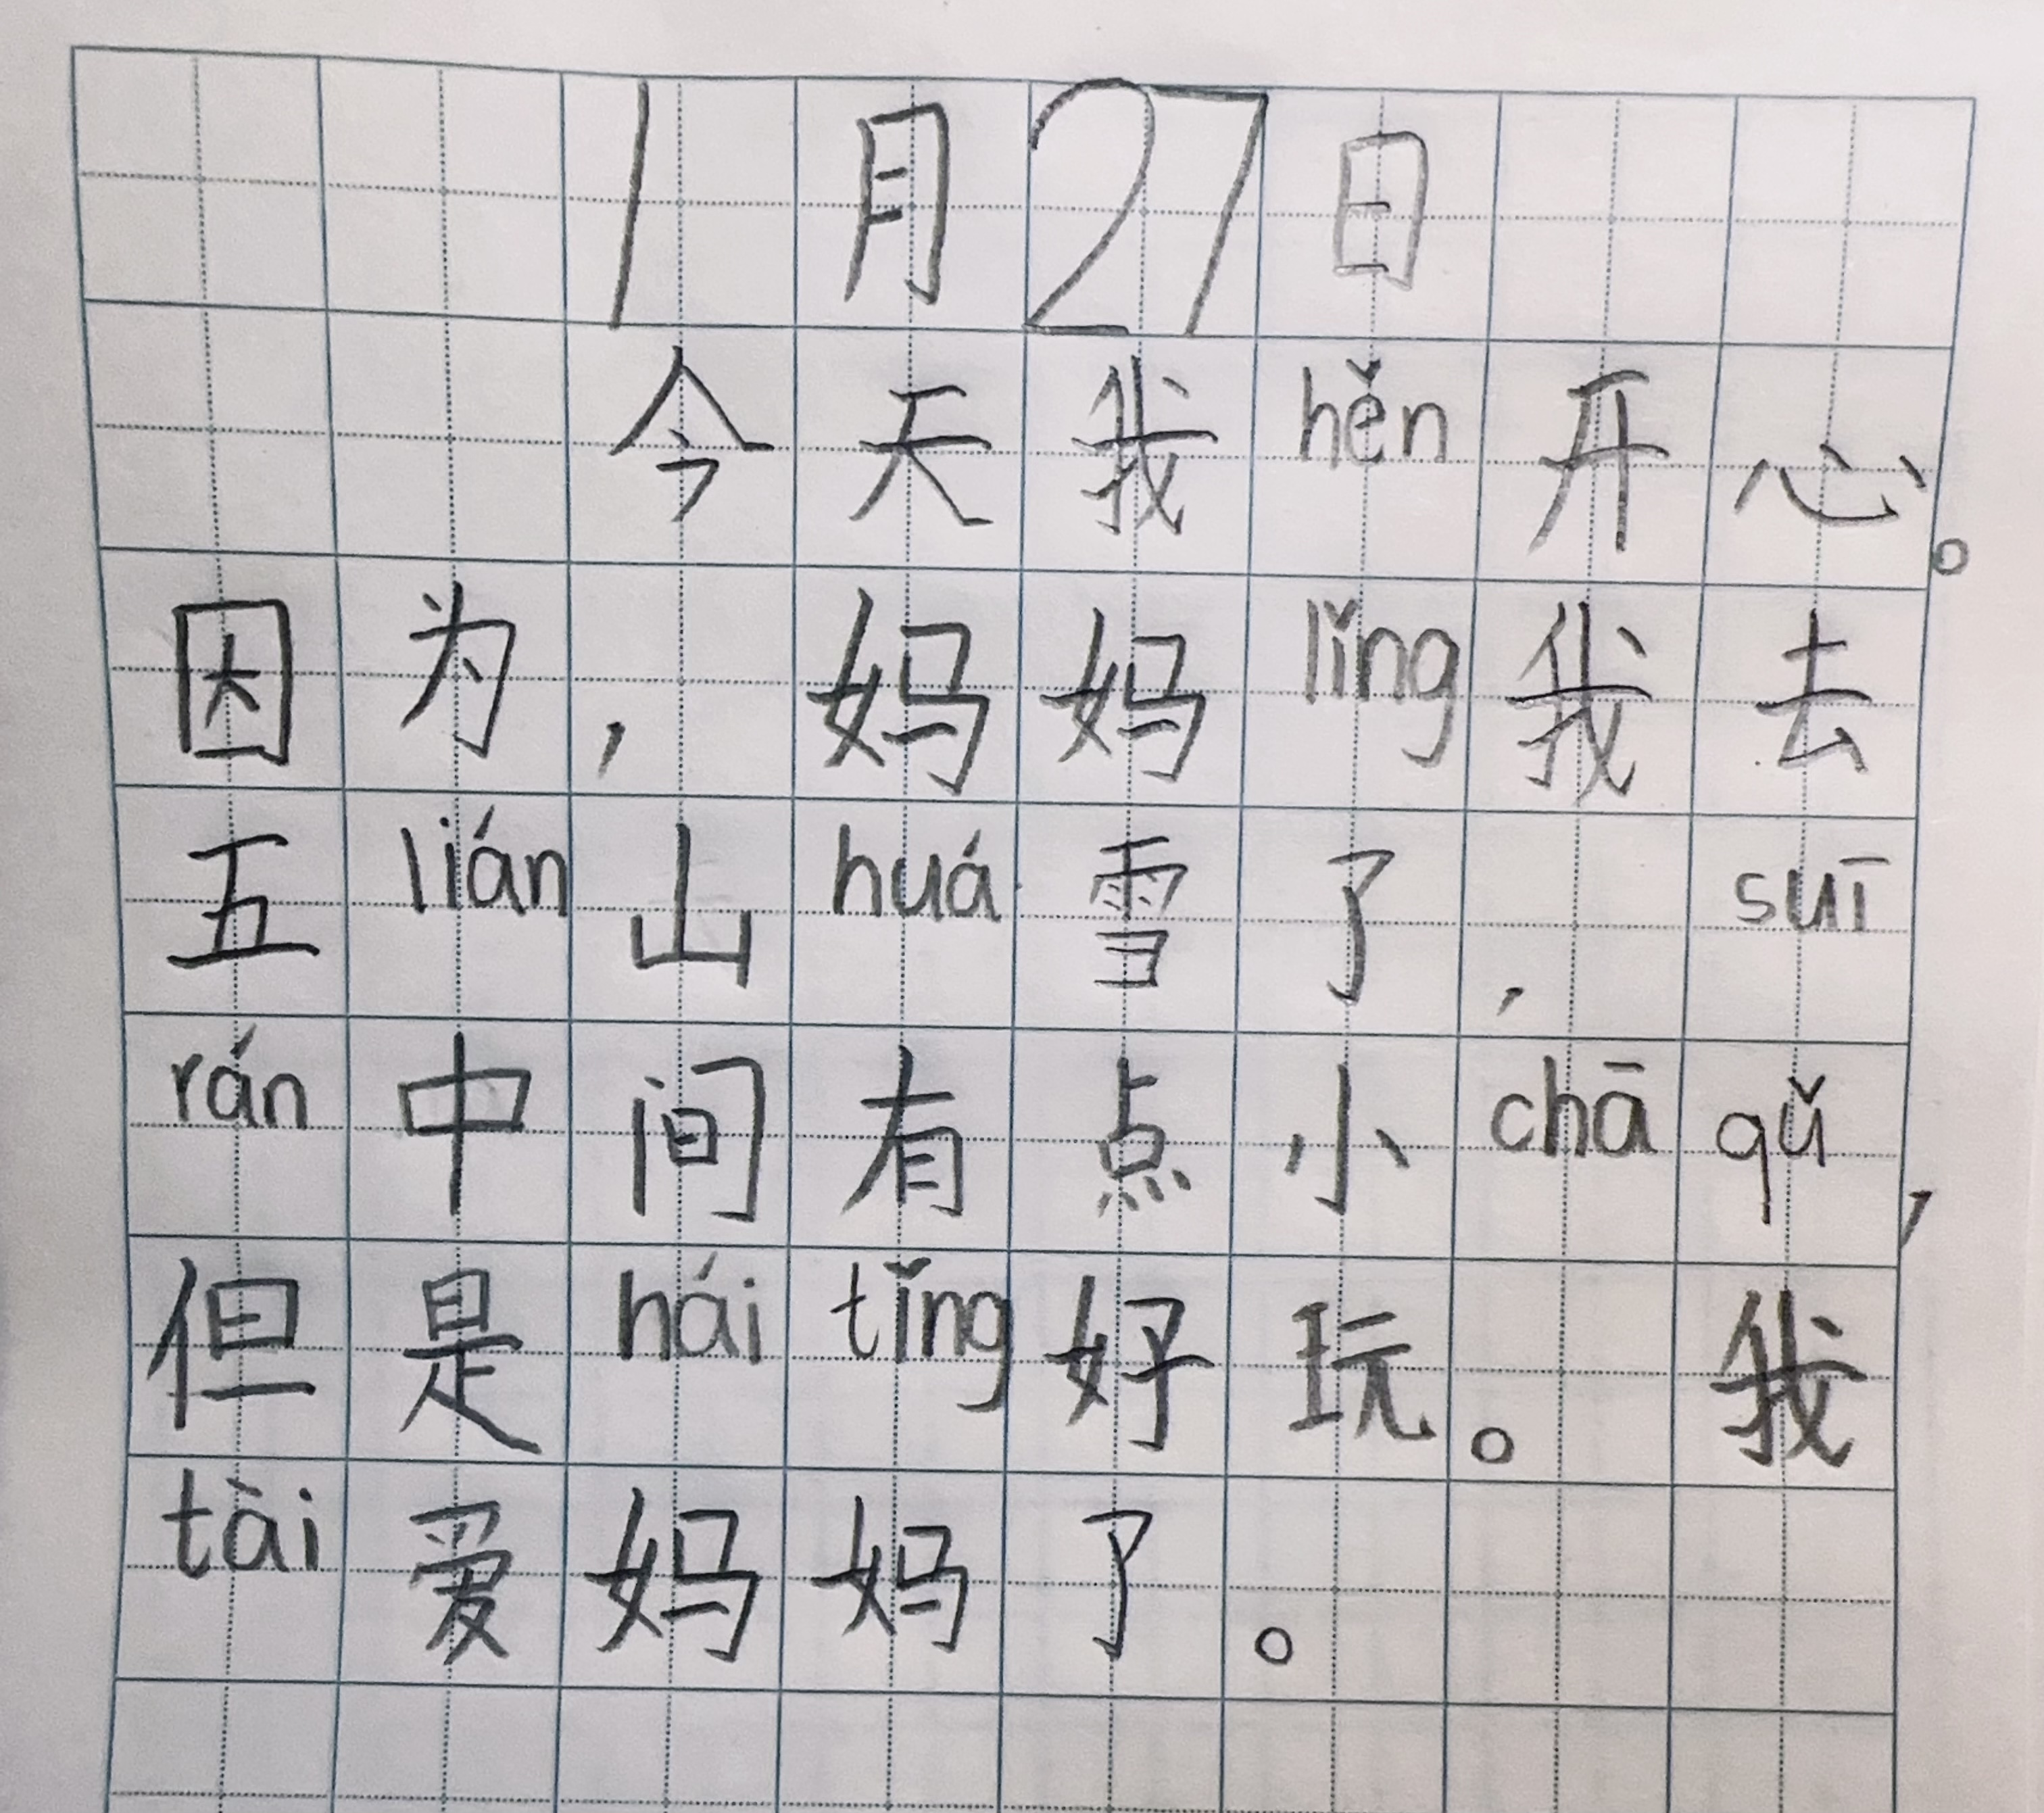 1月27日
今天我hěn开心。
因为，妈妈lǐng我去
五lián山huá雪了，suī
rán中间有点小chā qǔ，
但是hái tǐng好玩。我
tài爱妈妈了。